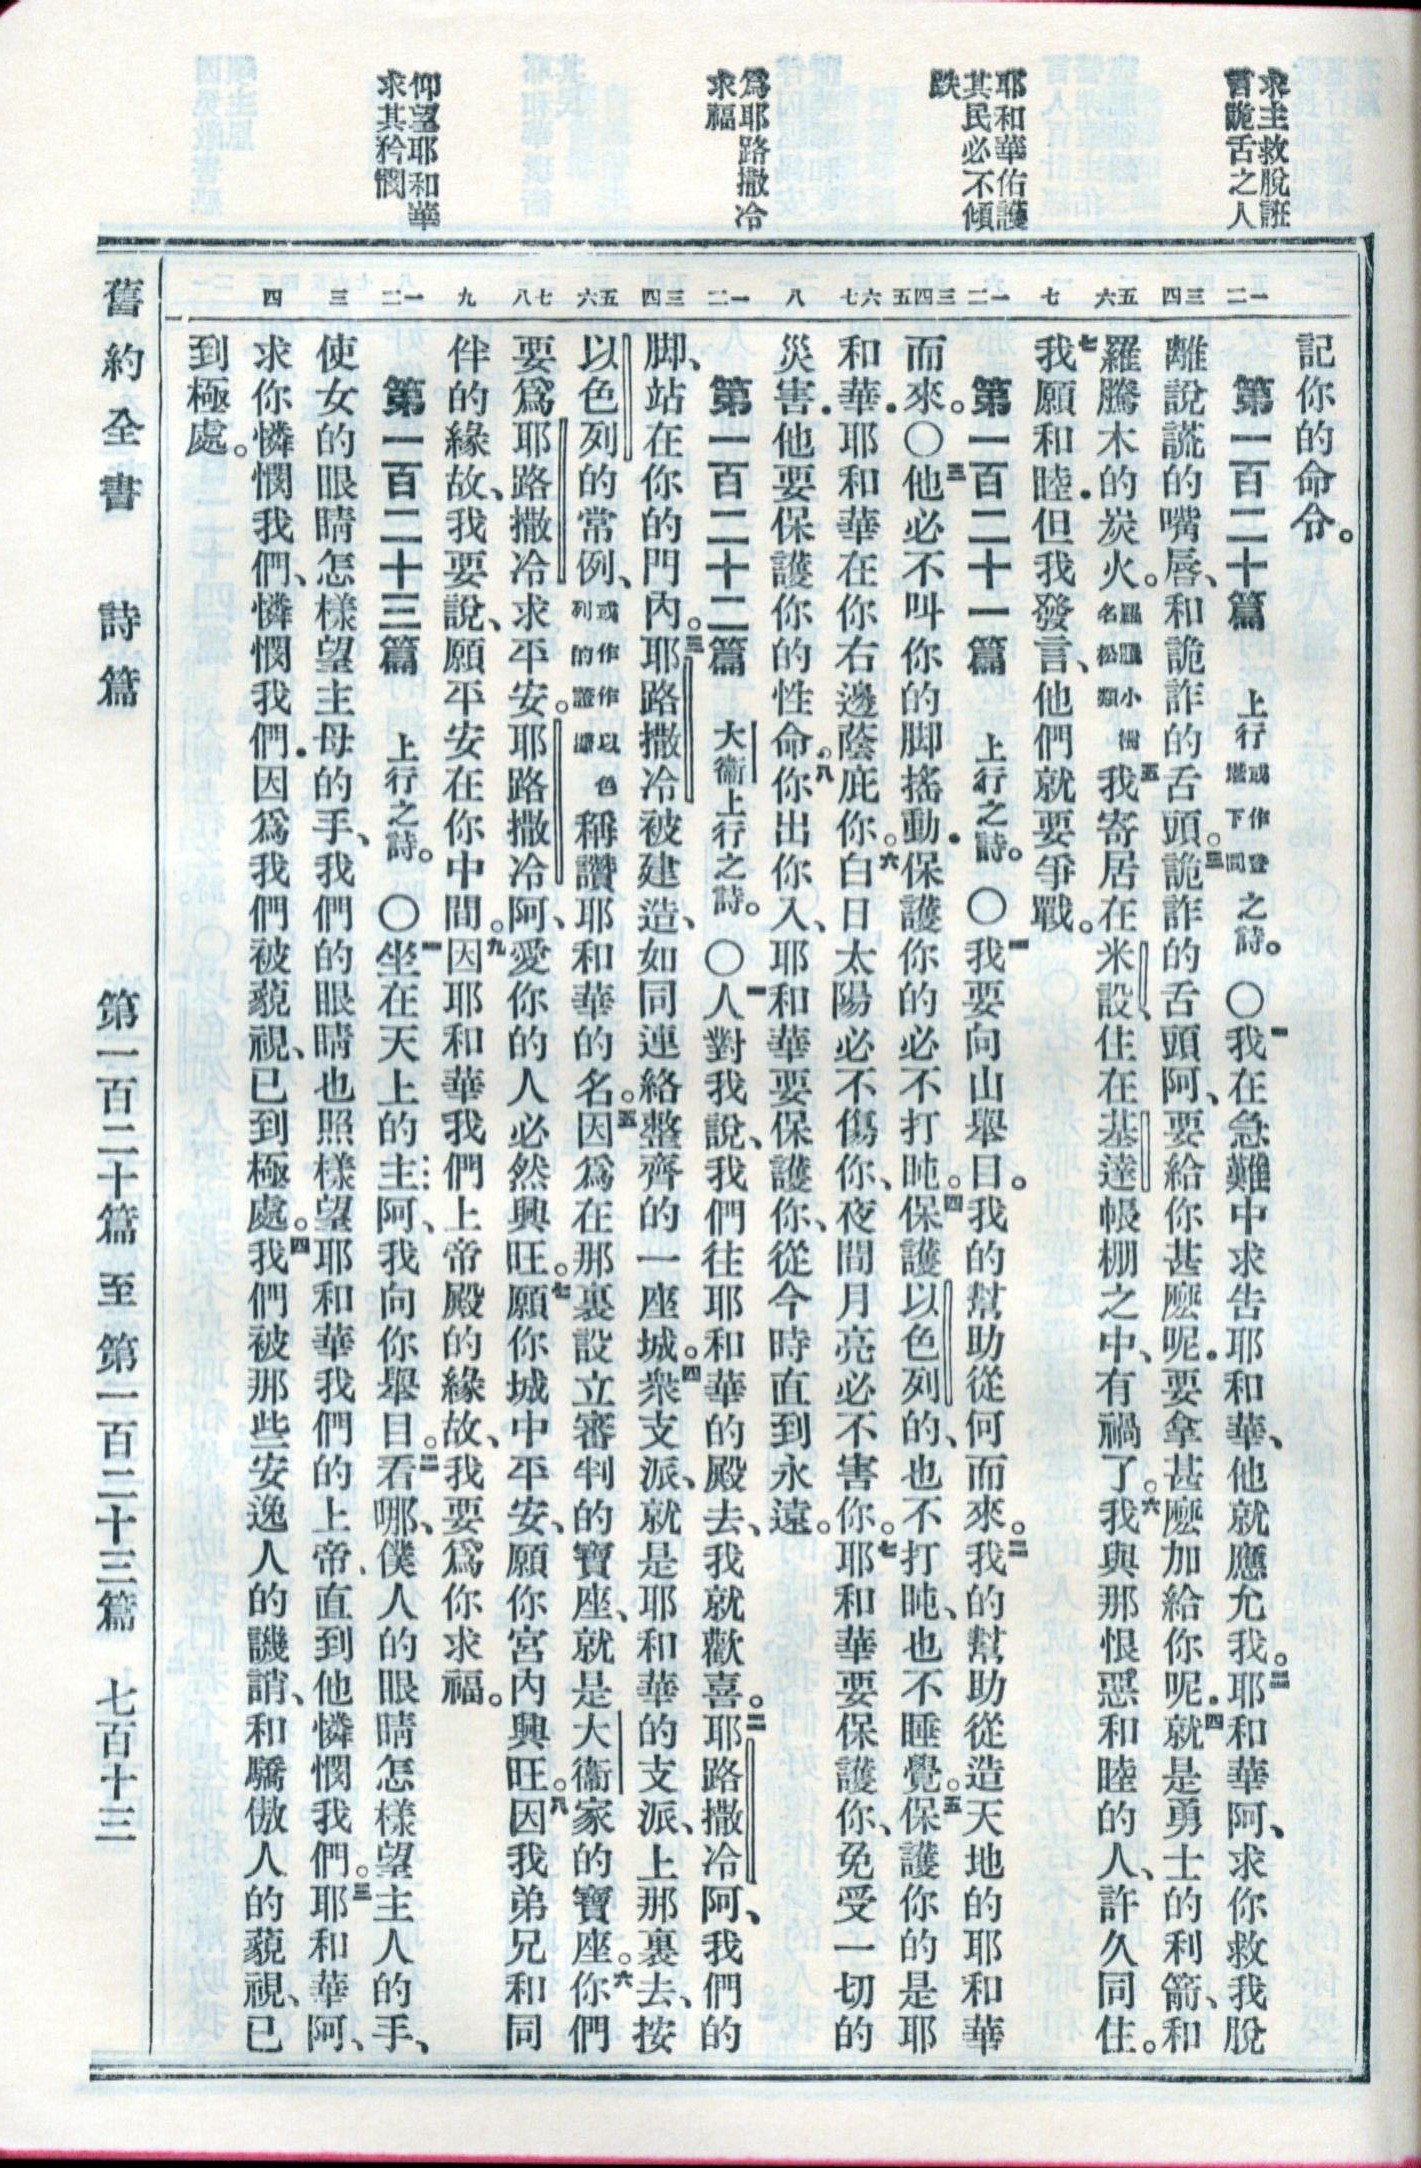 求主救脫誑
言詭舌之人
耶和華佑護
其民必不傾
跌
爲耶路撒冷
求福
仰望耶和華
求其矜憫
一二
三四
五六
七
一二
三四五
六七
八
一二
三四
五六
七八
九
一二
三
四
記你的命令。
第一百二十篇 上行或作登堦下同之詩。〇一我在急難中求告耶和華、他就應允我。二耶和華阿、求你救我脫
離說謊的嘴唇、和詭詐的舌頭。三詭詐的舌頭阿、要給你甚麼呢．要拿甚麼加給你呢．四就是勇士的利箭、和
羅騰木的炭火。羅騰小樹名松類五我寄居在米設、住在基達帳棚之中、有禍了。六我與那恨惡和睦的人、許久同住。
七我願和睦．但我發言、他們就要爭戰。
第一百二十一篇 上行之詩。〇一我要向山舉目。我的幫助從何而來。二我的幫助從造天地的耶和華
而來。〇三他必不叫你的脚搖動．保護你的必不打盹。四保護以色列的、也不打盹、也不睡覺。五保護你的是耶
和華．耶和華在你右邊蔭庇你。六白日太陽必不傷你、夜間月亮必不害你。七耶和華要保護你、免受一切的
災害．他要保護你的性命。八你出你入、耶和華要保護你、從今時直到永遠。
第一百二十二篇 大衞上行之詩。〇一人對我說、我們往耶和華的殿去、我就歡喜。二耶路撒冷阿、我們的
脚、站在你的門內。三耶路撒冷被建造、如同連絡整齊的一座城。四衆支派、就是耶和華的支派、上那裏去、按
以色列的常例、或作作以色列的證據稱讚耶和華的名。五因爲在那裏設立審判的寶座、就是大衞家的寶座。六你們
要爲耶路撒冷求平安。耶路撒冷阿、愛你的人必然興旺。七願你城中平安、願你宮內興旺。八因我弟兄和同
伴的緣故、我要說、願平安在你中間。九因耶和華我們上帝殿的緣故、我要爲你求福。
第一百二十三篇 上行之詩。〇一坐在天上的主阿、我向你舉目。二看哪、僕人的眼睛怎樣望主人的手、
使女的眼睛怎樣望主母的手、我們的眼睛也照樣望耶和華我們的上帝、直到他憐憫我們。三耶和華阿、
求你憐憫我們、憐憫我們．因爲我們被藐視、已到極處。四我們被那些安逸人的譏誚、和驕傲人的藐視、已
到極處。
舊約全書 詩篇 第一百二十篇至第一百二十三篇 七百十三